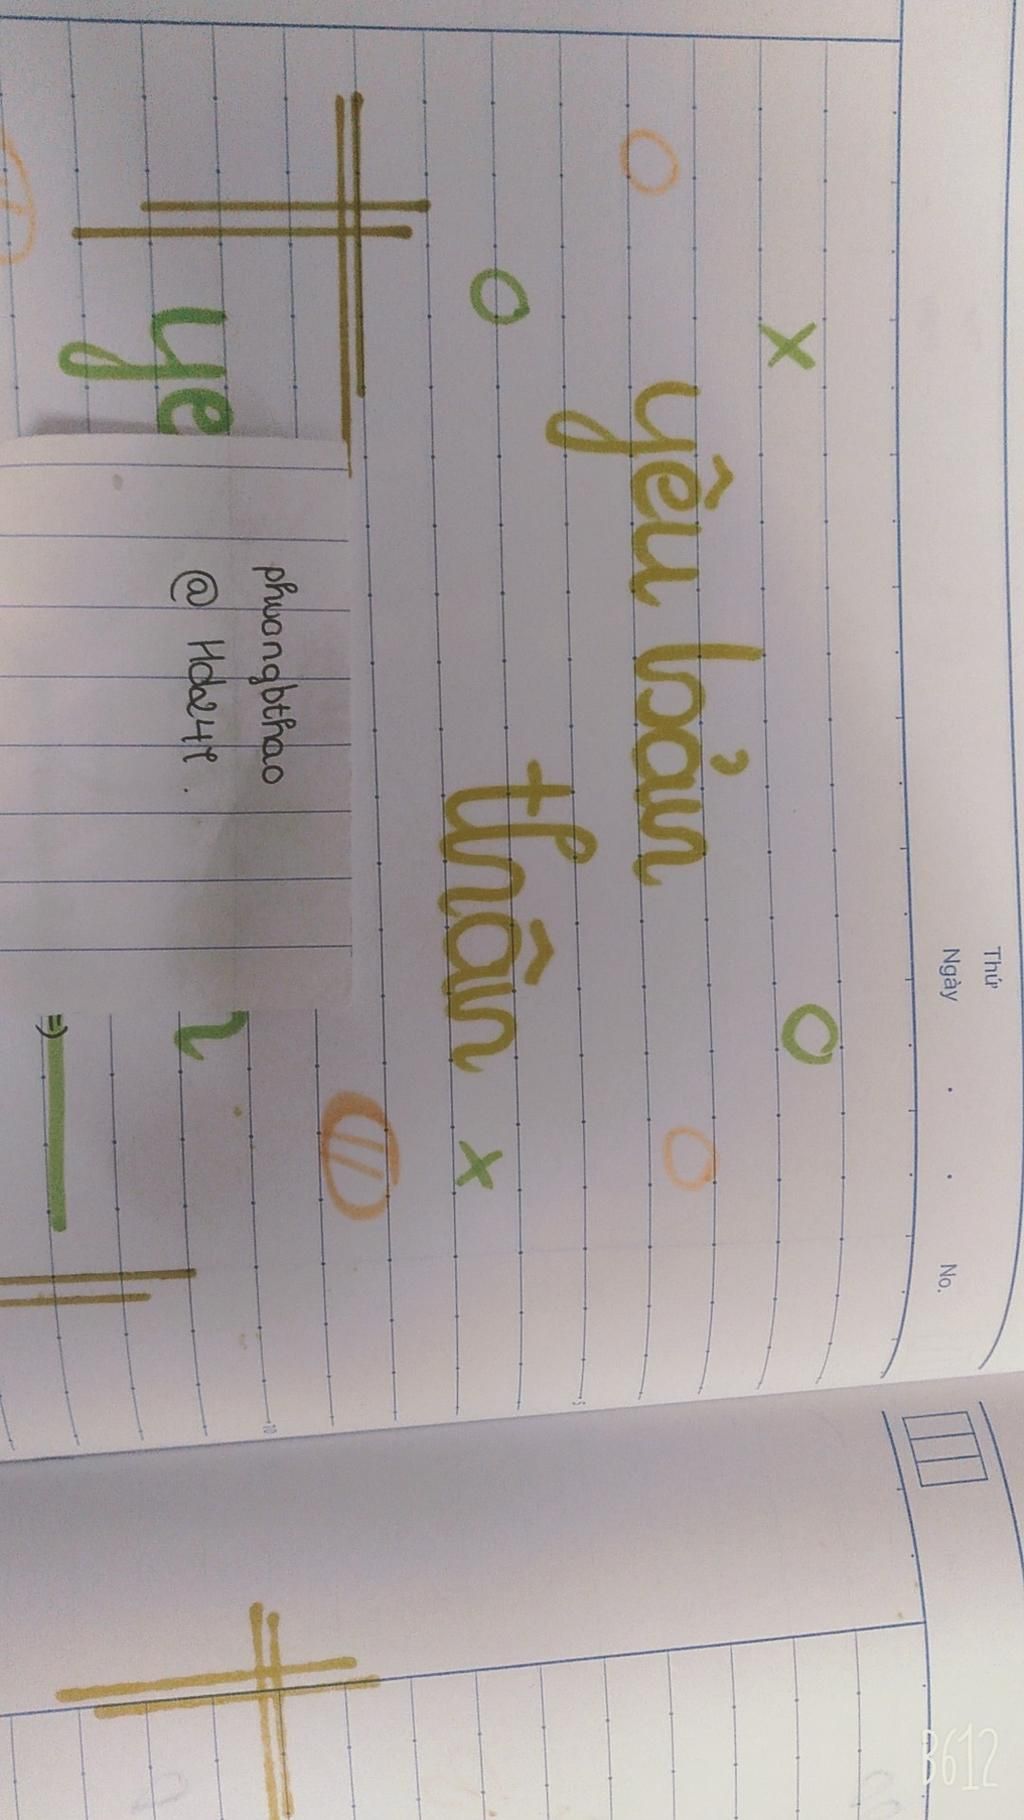 Thứ
Ngày
No.
yêu bản
thân
phwongbthao
ye
5
10
B612